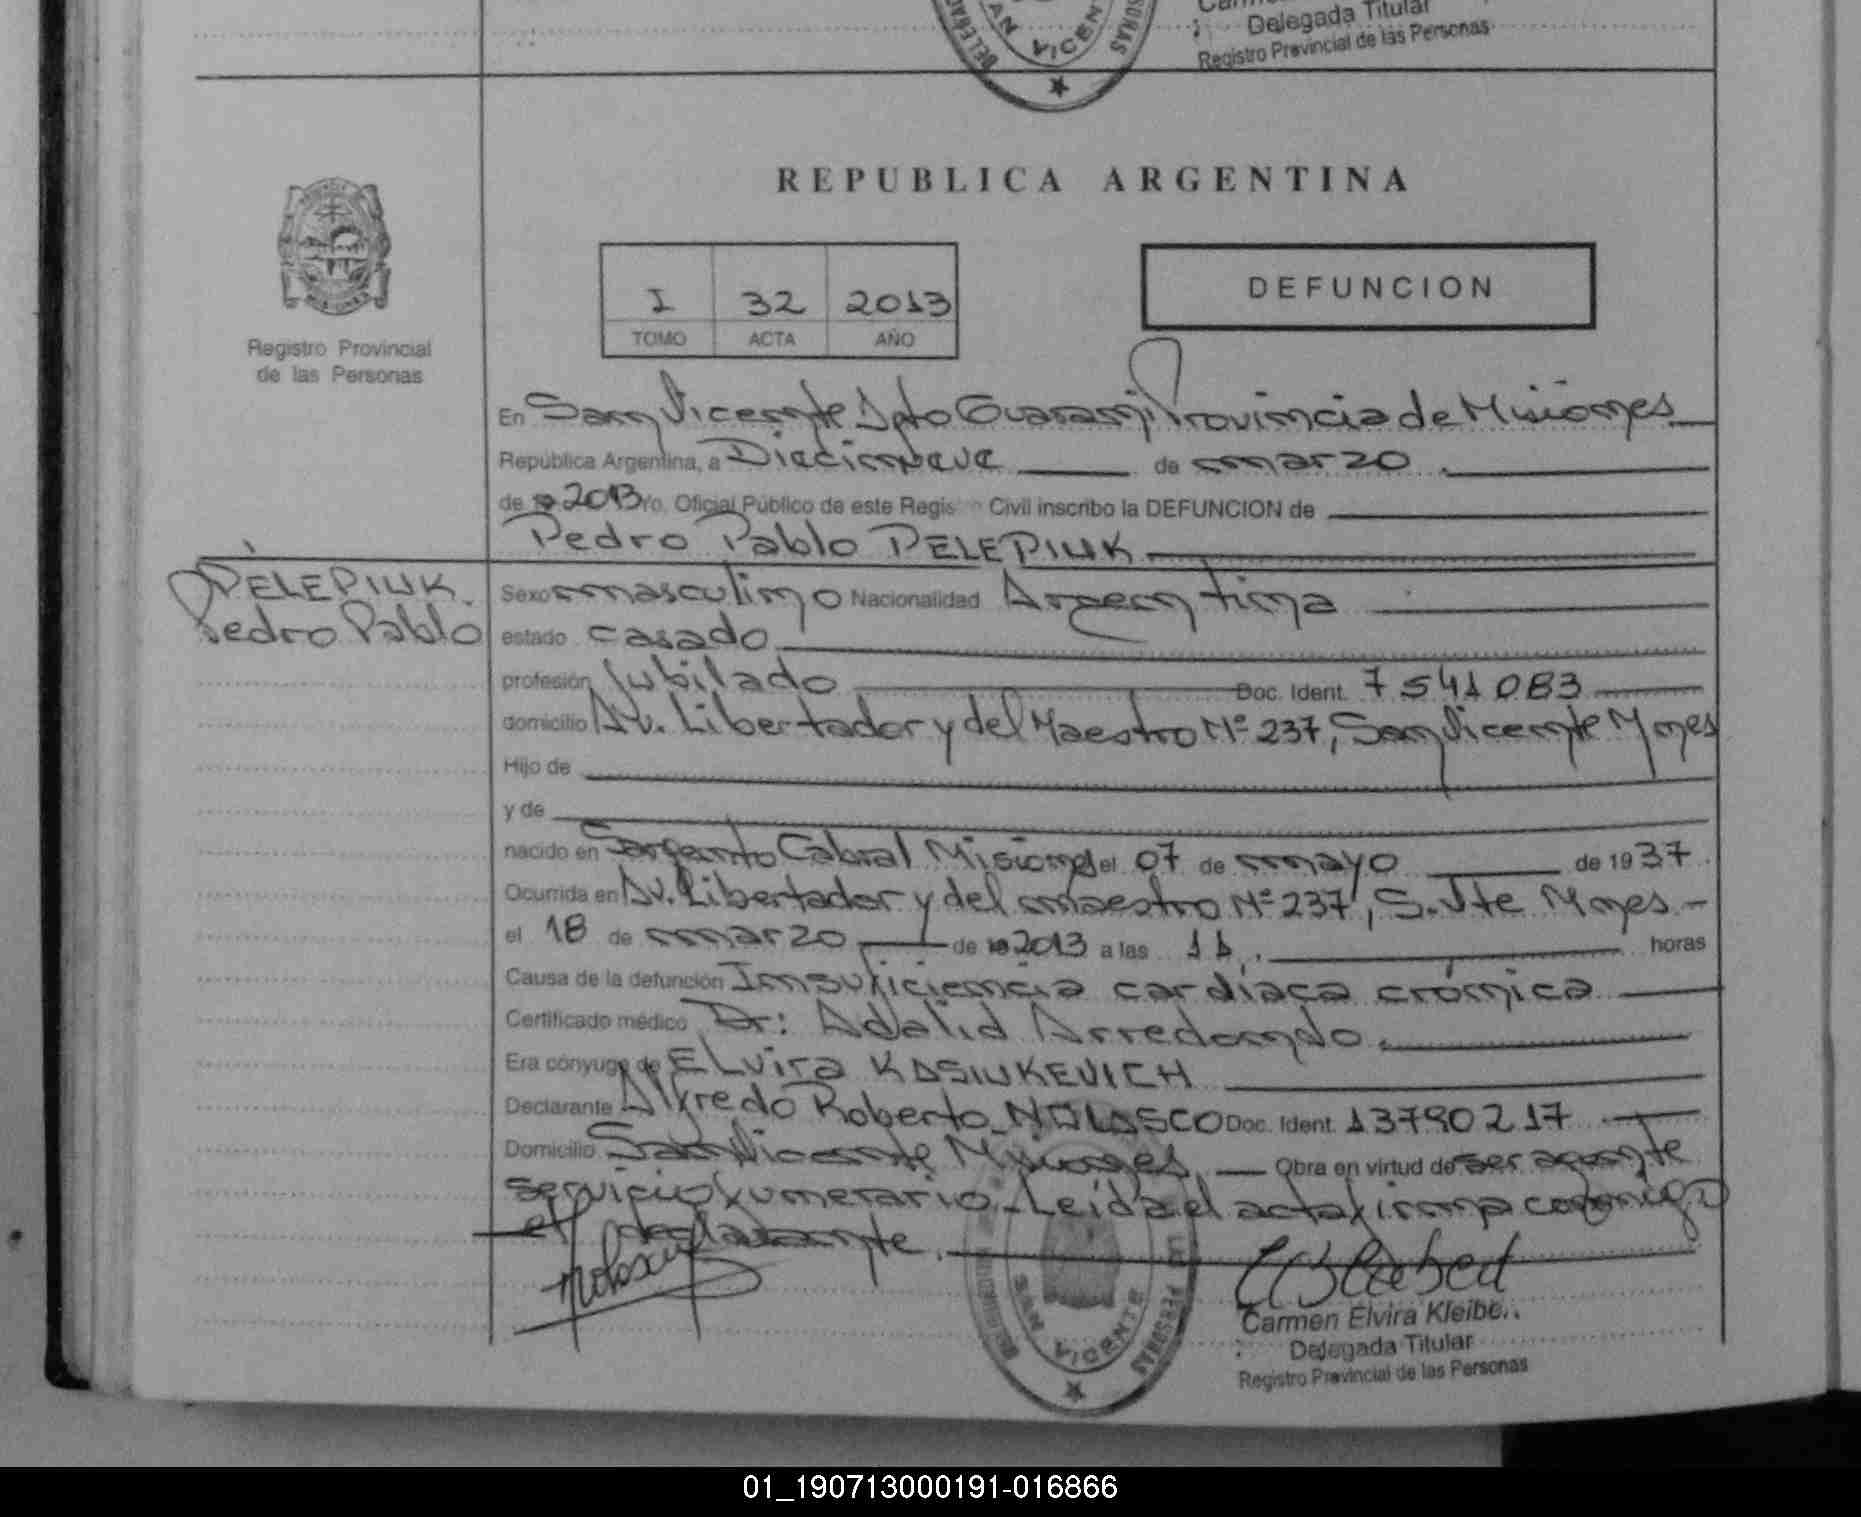 SAN VICENTE
Delegada Titular
Registro Provincial de las Personas
REPUBLICA ARGENTINA
I 32 2013
TOMO ACTA AÑO
DEFUNCION
Registro Provincial
de las Personas
En San Vicente Dpto Guarani Provincia de Misiones
República Argentina, a Diecinueve de marzo
de 19 2013 Yo, Oficial Público de este Regis Civil inscribo la DEFUNCION de
Pedro Pablo PELEPIUK
PELEPIUK
Pedro Pablo
Sexo masculino Nacionalidad Argentina
estado casado
profesión Jubilado Doc. Ident. 7541083
domicilio Av. Libertador y del Maestro Nº 237, San Vicente Mnes
Hijo de
y de
nacido en Sargento Cabral Misiones el 07 de mayo de 1937
Ocurrida en Av. Libertador y del maestro Nº 237, S. Vte Mnes.-
el 18 de marzo de 19 2013 a las horas
Causa de la defunción Insuficiencia cardiaca crónica
Certificado médico Dr: Adalid Arredondo.
Era cónyuge de ELvira KASIUKEVICH
Declarante Alfredo Roberto NOLASCO Doc. Ident. 13790217
Domicilio San Vicente Misiones Obra en virtud de ser agente
servicio fumerario.- Leída el acta firma conmigo
el declarante.
SAN VICENTE
Carmen Elvira Kleibe
Delegada Titular
Registro Provincial de las Personas
01_190713000191-016866